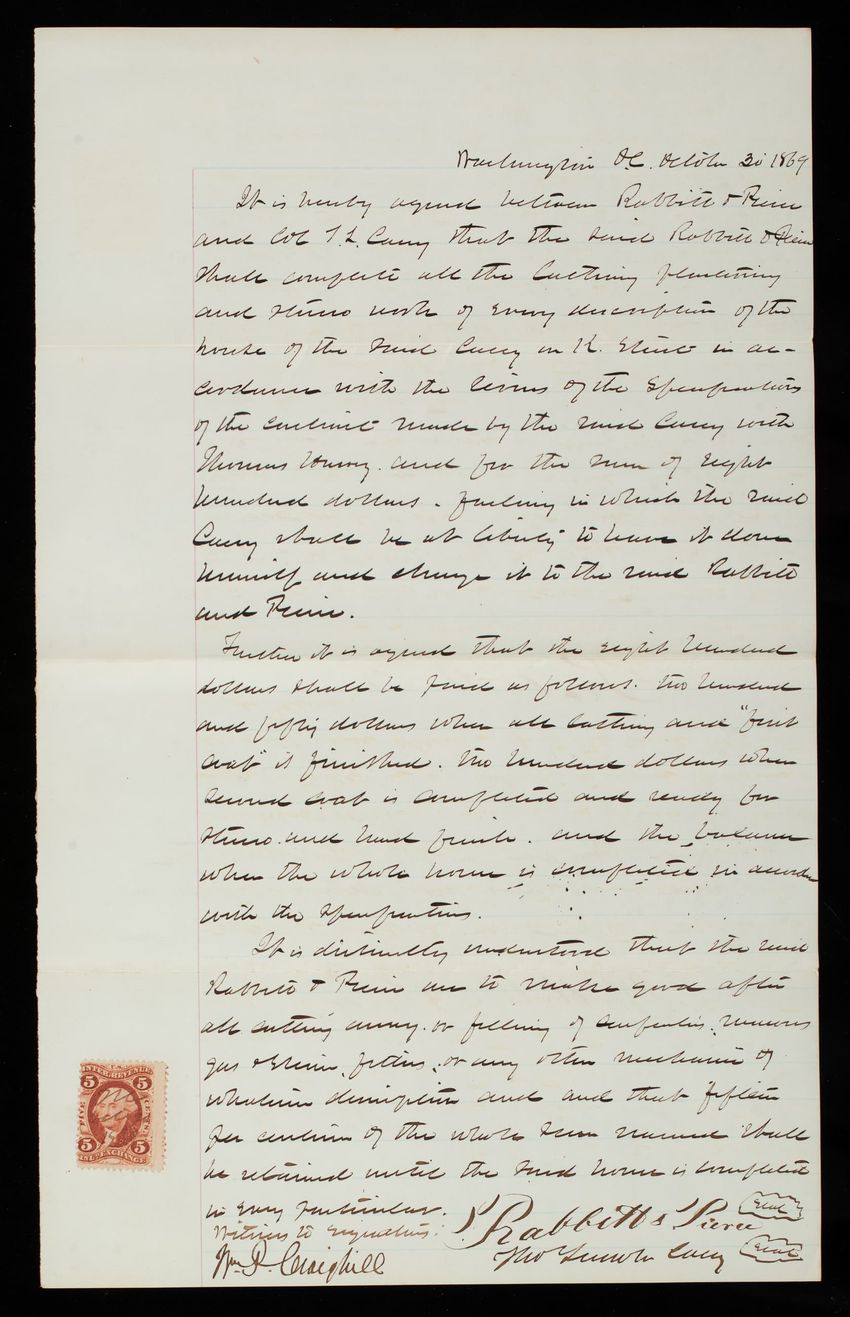 Washington D.C. October 30 1869
It is hereby agreed between Rabbitt & Pierce
and Col T. L. Casey that the said Rabbitt & Pierce
shall complete all the lathing plastering
and stucco work of every description of the
house of the said Casey on K. Street in ac-
cordance with the terms of the specifications
of the contract made by the said Casey with
Thomas and for the sum of eight
hundred dollars. failing in which the said
Casey shall be at liberty to have it done
himself and charge it to the said Rabbitt
and Pierce.
Further it is agreed that the eight hundred
dollars shall be paid as follows. two hundred
and fifty dollars when all lathing and "first
coat" is finished. two hundred dollars when
second coat is completed and ready for
stucco and hard finish. and the balance
when the whole house is completed in accordance
with the specifications.
It is distinctly understood that the said
Rabbitt & Pierce are to make good after
all cutting away. or filling of carpenters, masons
gas & steam fitters, or any other mechanic of
whatever description and and that fifteen
per centum of the whole sum named shall
be retained until the said house is completed
in every particular.
Witness to signatures:
Rabbitt & Pierce
Seal
Wm P. Craighill
Thos Lincoln Casey
Seal
U.S.
INTER. REVENUE
5 5
FIVE CENTS
5 5
INL. EXCHANGE